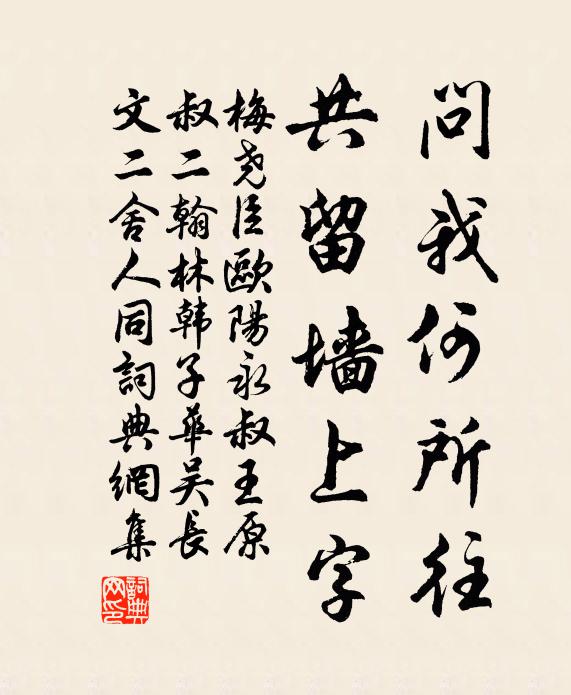 問我何所往
共留墙上字
梅尧臣歐陽永叔王原
叔二翰林韩子華吴長
文二舍人同詞典網集
詞典網印